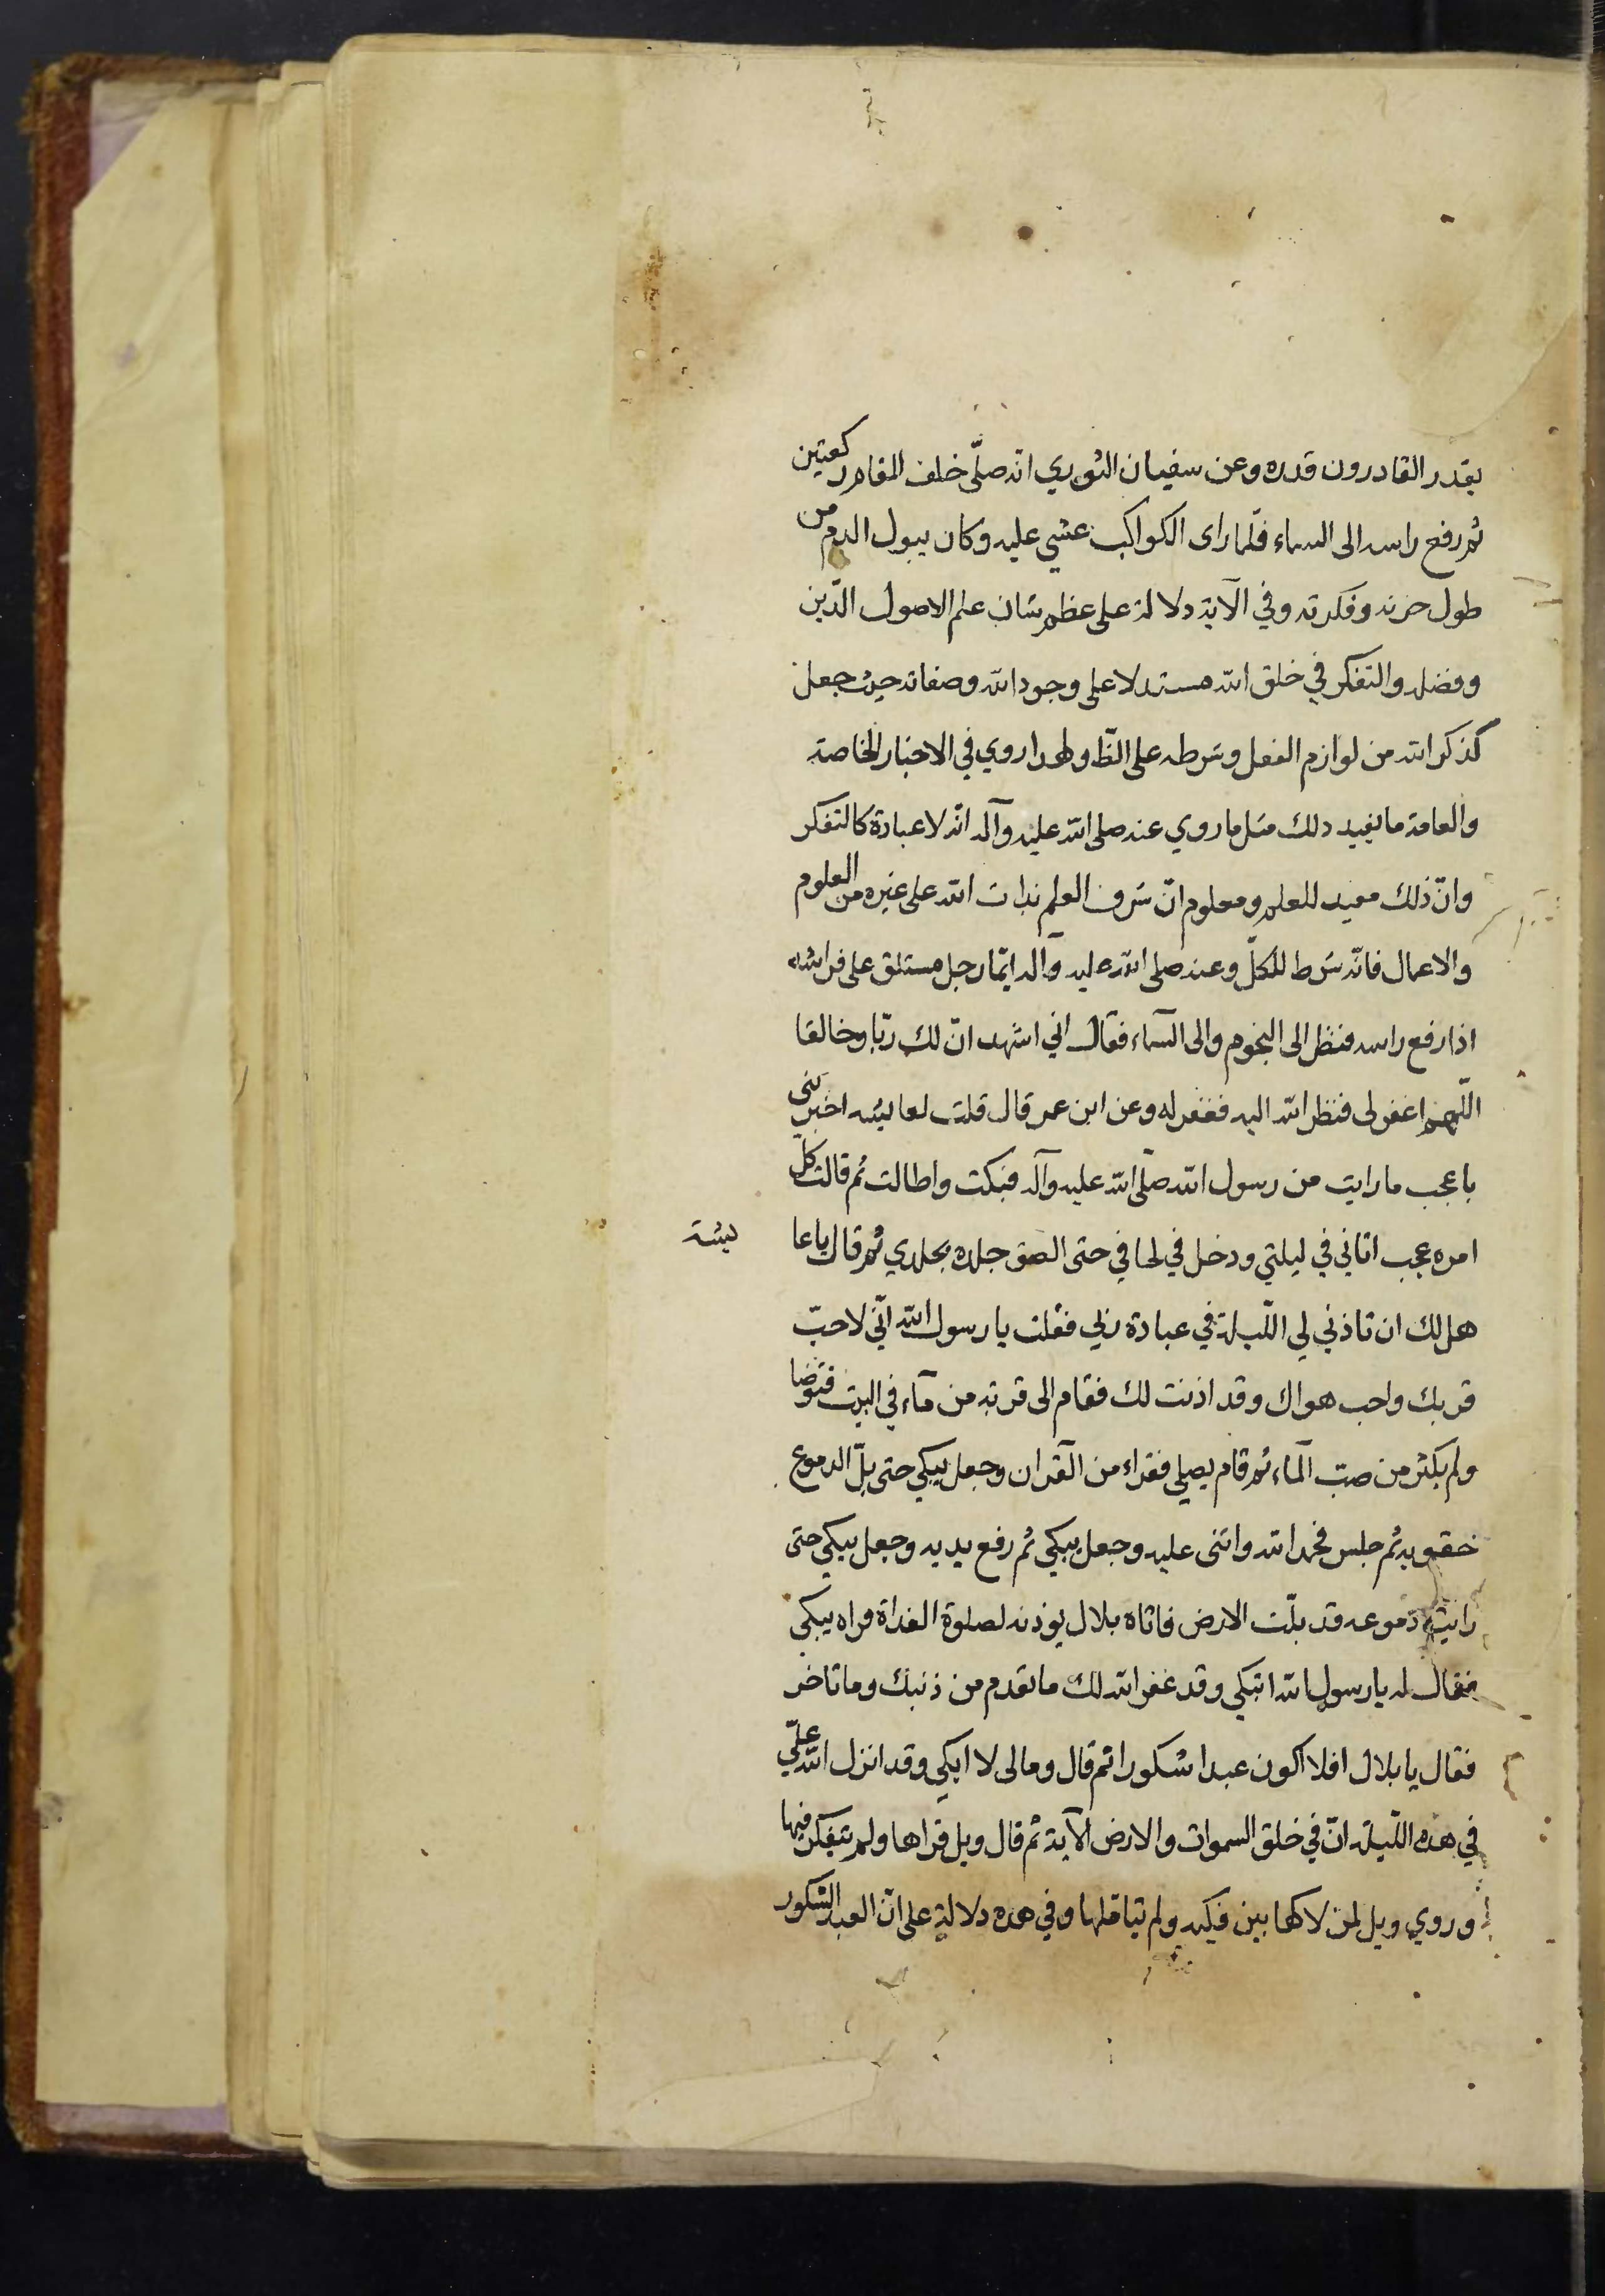 يقدر القادرون قدره وعن سفيان الثوري انه صلّى خلف المقام ركعتين
ثم رفع راسه الى السماء فلّما راى الكواكب غشي عليه وكان يبول الدم من
طول حزنه وفكرته وفي الآية دلالة على عظم شان علم الاصول الدّين
وفضله والتفكر في خلق الله مستدلا على وجود الله وصفاته حيث جعل
كذكر الله من لوازم العقل وشرطه على الظ ولهذا روي في الاخبار الخاصة
والعامة ما يفيد ذلك مثل ما روي عنه صلى الله عليه وآله انّه لا عبادة كالتفكر
وانّ ذلك مفيد للعلم ومعلوم انّ شرف العلم بذات الله على غيره من العلوم
والاعمال فانّه شرط للكلّ وعنه صلى الله عليه وآله ايّما رجل مستلق على فراشه
اذا رفع راسه فنظر الى النجوم والى السّماء فقال اني اشهد انّ لك ربّا وخالقا
اللّهم اغفر لى فنظر الله اليه فغفر له وعن ابن عمر قال قلت لعايشه اخبريني
باعجب ما رايت من رسول الله صلّى الله عليه وآله فبكت واطالت ثم قالت كلّ
امره عجب اتاني في ليلتي ودخل في لحافي حتى الصق جلده بجلدي ثم قال يا عا
يشة
هل لك ان تاذني لي اللّيلة في عبادة ربّي فقلت يا رسول الله انّي لاحبّ
قربك واحب هواك وقد اذنت لك فقام الى قربة من مآء في البيت فتوضا
ولم يكثر من صبّ المآء ثم قام يصلي فقراء من القران وجعل يبكي حتى بلّ الدموع
حقويه ثم جلس فحمد الله واثنى عليه وجعل يبكي ثم رفع يديه وجعل يبكي حتى
رايت دموعه قد بلّت الارض فاتاه بلال يوذنه لصلوة الغداة فراه يبكي
فقال له يا رسول الله اتبكي وقد غفر الله لك ما تقدم من ذنبك وما تاخر
فقال يا بلال افلا اكون عبدا شكورا ثم قال ومالى لا ابكي وقد انزل الله علّي
في هذه اللّيلة انّ في خلق السموات والارض الآية ثم قال ويل قراها ولم يتفكر فيها
وروي ويل لمن لاكها بين فكيه ولم يتاملها وفي هذه دلالة على انّ العبد الشكور